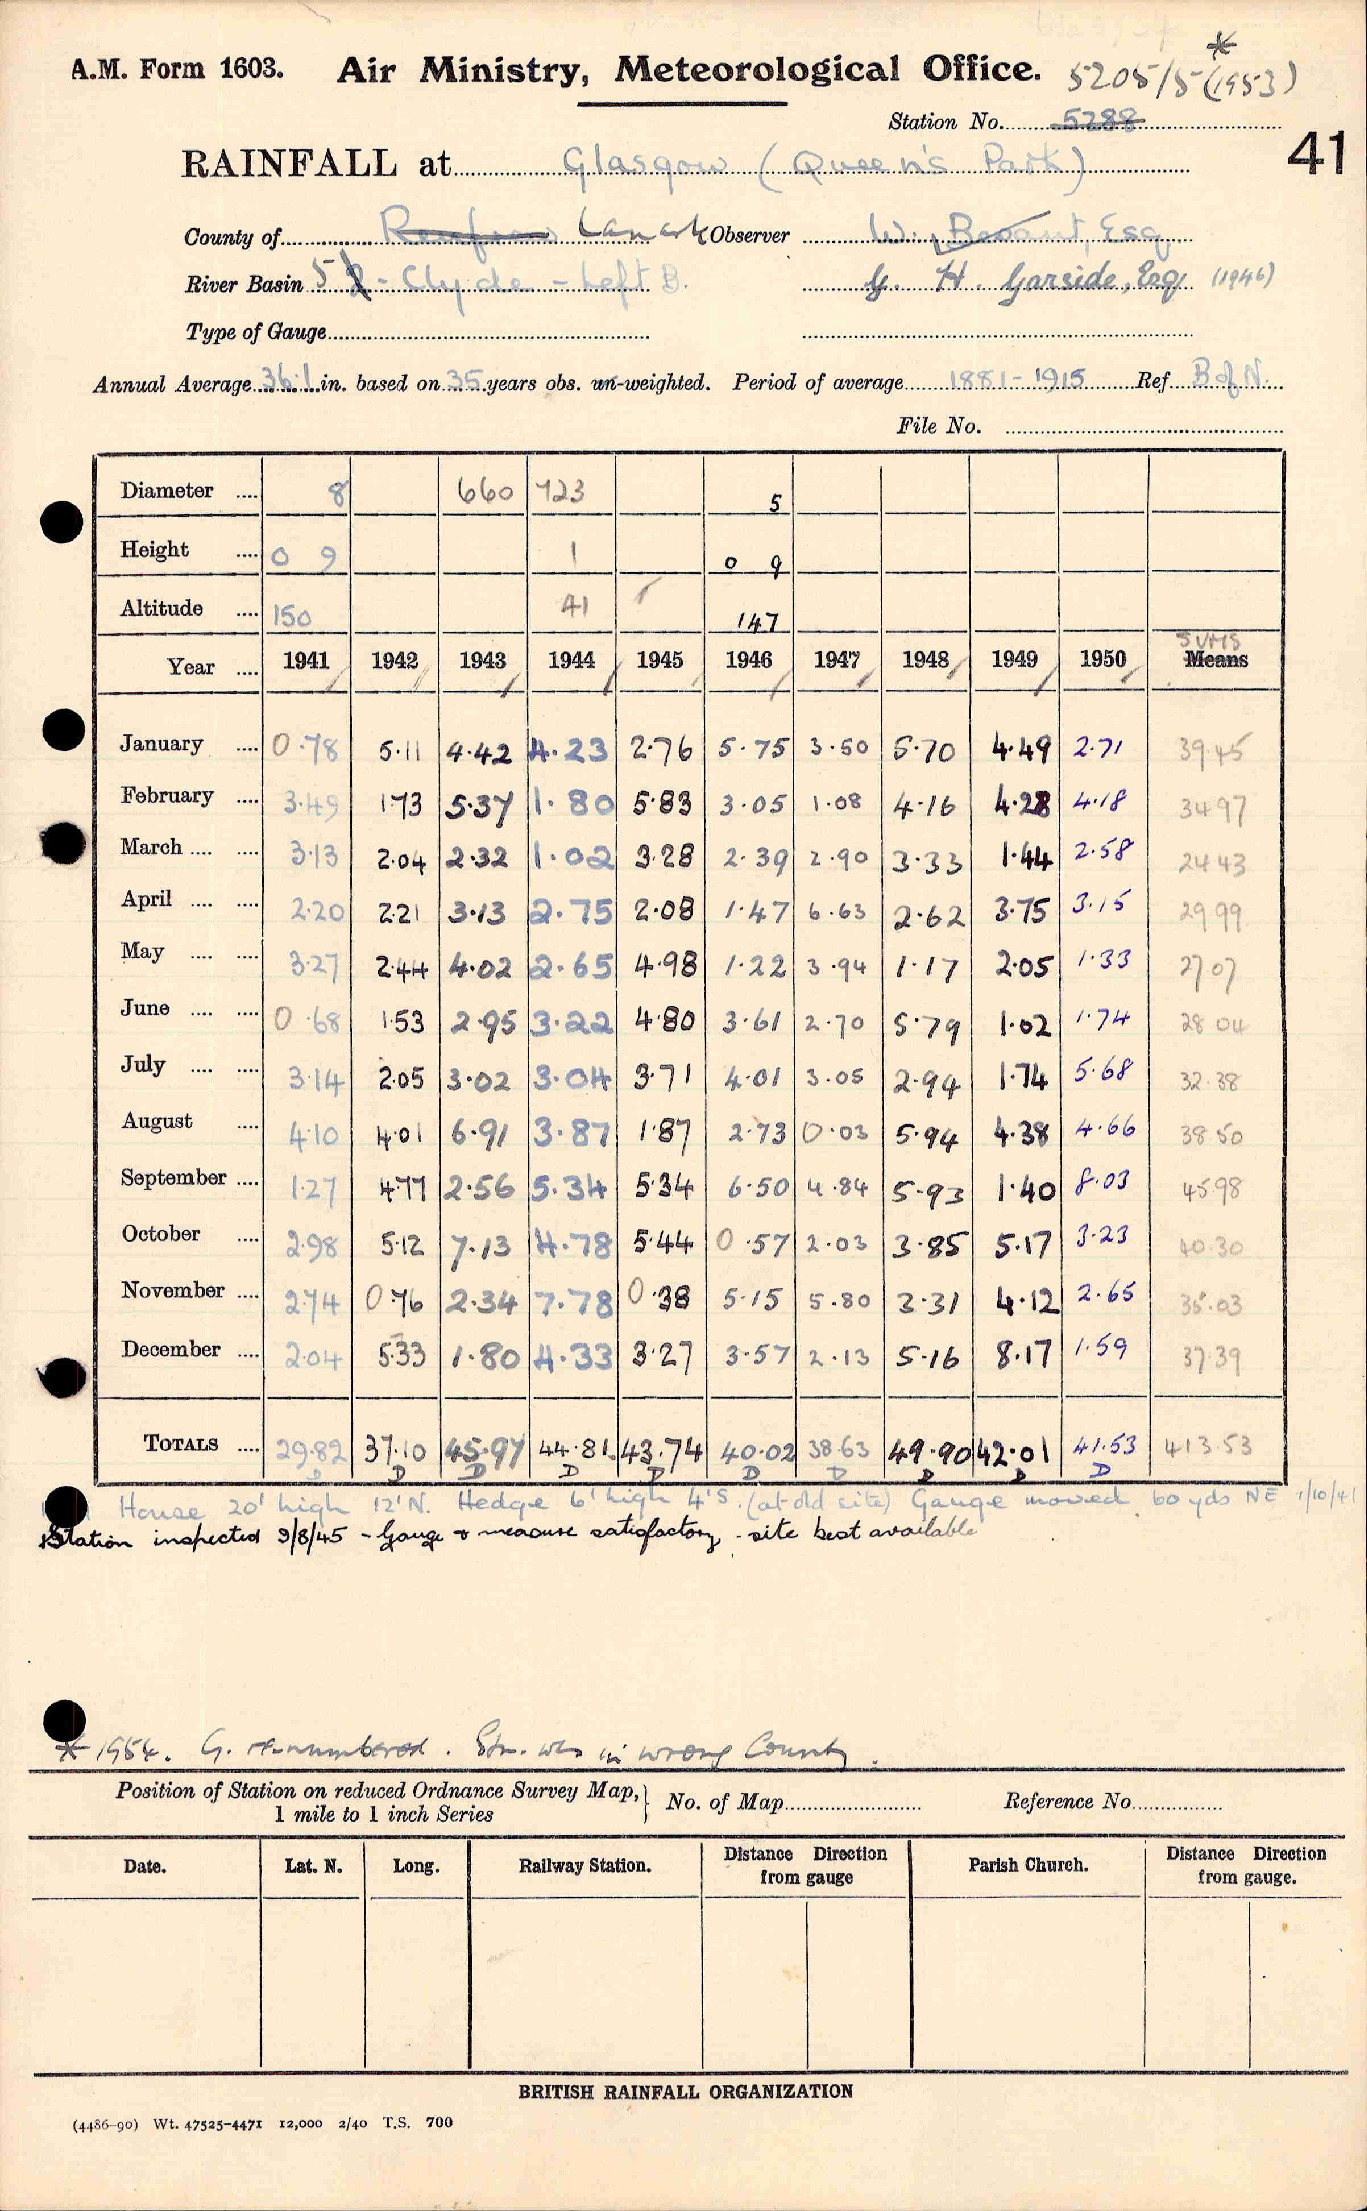 A.M. Form 1603. Air Ministry, Meteorological Office. 5205/5 (1953) *
Station No. 5288
41
RAINFALL at Glasgow (Queen's Park)
County of Renfrew Lanark Observer W. Bevant, Esq
River Basin 5 - Clyde - Left B. G. H. Garside, Esq (1946)
Type of Gauge
Annual Average 36.1 in. based on 35 years obs. un-weighted. Period of average 1881-1915 Ref. B of N.
File No.
Diameter .... 8 660 723 5
Height .... 0 9 1 0 9
Altitude .... 150 41 147
Sums
Year .... 1941 1942 1943 1944 1945 1946 1947 1948 1949 1950 Means
January .... 0.78 5.11 4.42 4.23 2.76 5.75 3.50 5.70 4.49 2.71 39.45
February .... 3.49 1.73 5.37 1.80 5.83 3.05 1.08 4.16 4.28 4.18 34 97
March .... .... 3.13 2.04 2.32 1.02 3.28 2.39 2.90 3.33 1.44 2.58 24 43
April .... .... 2.20 2.21 3.13 2.75 2.08 1.47 6.63 2.62 3.75 3.15 29 99
May .... .... 3.27 2.44 4.02 2.65 4.98 1.22 3.94 1.17 2.05 1.33 27 07
June .... .... 0.68 1.53 2.95 3.22 4.80 3.61 2.70 5.79 1.02 1.74 28 04
July .... .... 3.14 2.05 3.02 3.04 3.71 4.01 3.05 2.94 1.74 5.68 32.38
August .... 4.10 4.01 6.91 3.87 1.87 2.73 0.03 5.94 4.38 4.66 38 50
September .... 1.27 4.77 2.56 5.34 5.34 6.50 4.84 5.93 1.40 8.03 45 98
October .... 2.98 5.12 7.13 4.78 5.44 0.57 2.03 3.85 5.17 3.23 40.30
November .... 2.74 0.76 2.34 7.78 0.38 5.15 5.80 3.31 4.12 2.65 35.03
December .... 2.04 5.33 1.80 4.33 3.27 3.57 2.13 5.16 8.17 1.59 37.39
TOTALS .... 29.82 37.10 45.97 44.81 43.74 40.02 38.63 49.90 42.01 41.53 413.53
D D D D D D D D D D
House 20' high 12' N. Hedge 6' high 4' S. (at old site) Gauge moved 60 yds NE 1/10/41
Station inspected 9/8/45 - Gauge & measure satisfactory - site best available
* 1954. G. re-numbered. Stn. was in wrong County.
Position of Station on reduced Ordnance Survey Map, } No. of Map Reference No.
1 mile to 1 inch Series
Date. Lat. N. Long. Railway Station. Distance Direction from gauge Parish Church. Distance Direction from gauge.
BRITISH RAINFALL ORGANIZATION
(4486-90) Wt. 47525-4471 12,000 2/40 T.S. 700